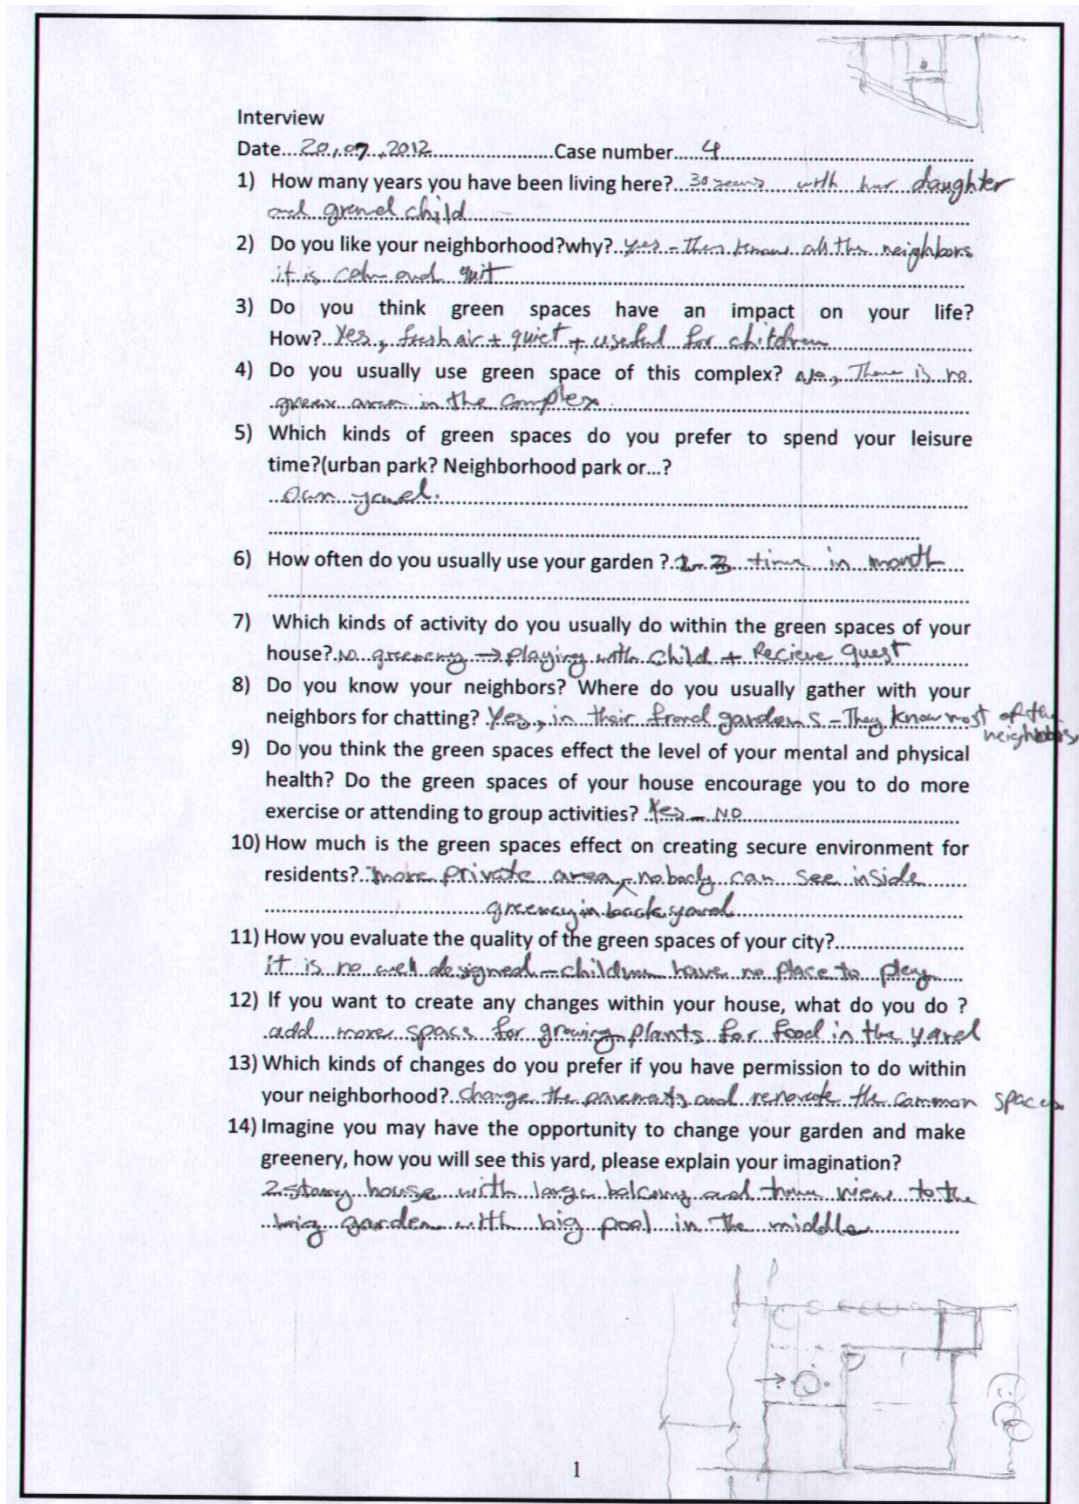 Interview
Date...20,07,2012..........Case number....4..........
1) How many years you have been living here?..30 years with her daughter
and grand child
2) Do you like your neighborhood?why?..yes - They know all the neighbors
it is calm and quit
3) Do you think green spaces have an impact on your life?
How?..Yes, fresh air + quiet + useful for children
4) Do you usually use green space of this complex? No, There is no
green area in the complex
5) Which kinds of green spaces do you prefer to spend your leisure
time?(urban park? Neighborhood park or...?
own yared.
6) How often do you usually use your garden ?. 2-3 time in month
7) Which kinds of activity do you usually do within the green spaces of your
house?.No greenery → playing with child + Recieve guest
8) Do you know your neighbors? Where do you usually gather with your
neighbors for chatting? Yes, in their frond gardens - They know most of the
neighbors
9) Do you think the green spaces effect the level of your mental and physical
health? Do the green spaces of your house encourage you to do more
exercise or attending to group activities? Yes - NO
10) How much is the green spaces effect on creating secure environment for
residents?..more private area, nobody can see inside
greenery in back yared
11) How you evaluate the quality of the green spaces of your city?......
it is no well designed - children have no place to play
12) If you want to create any changes within your house, what do you do ?
add more spacs for growing plants for food in the yared
13) Which kinds of changes do you prefer if you have permission to do within
your neighborhood? change the pavements and renovate the common spaces
14) Imagine you may have the opportunity to change your garden and make
greenery, how you will see this yard, please explain your imagination?
2 story house with large balcony and view to the
big garden with big pool in the middle
1